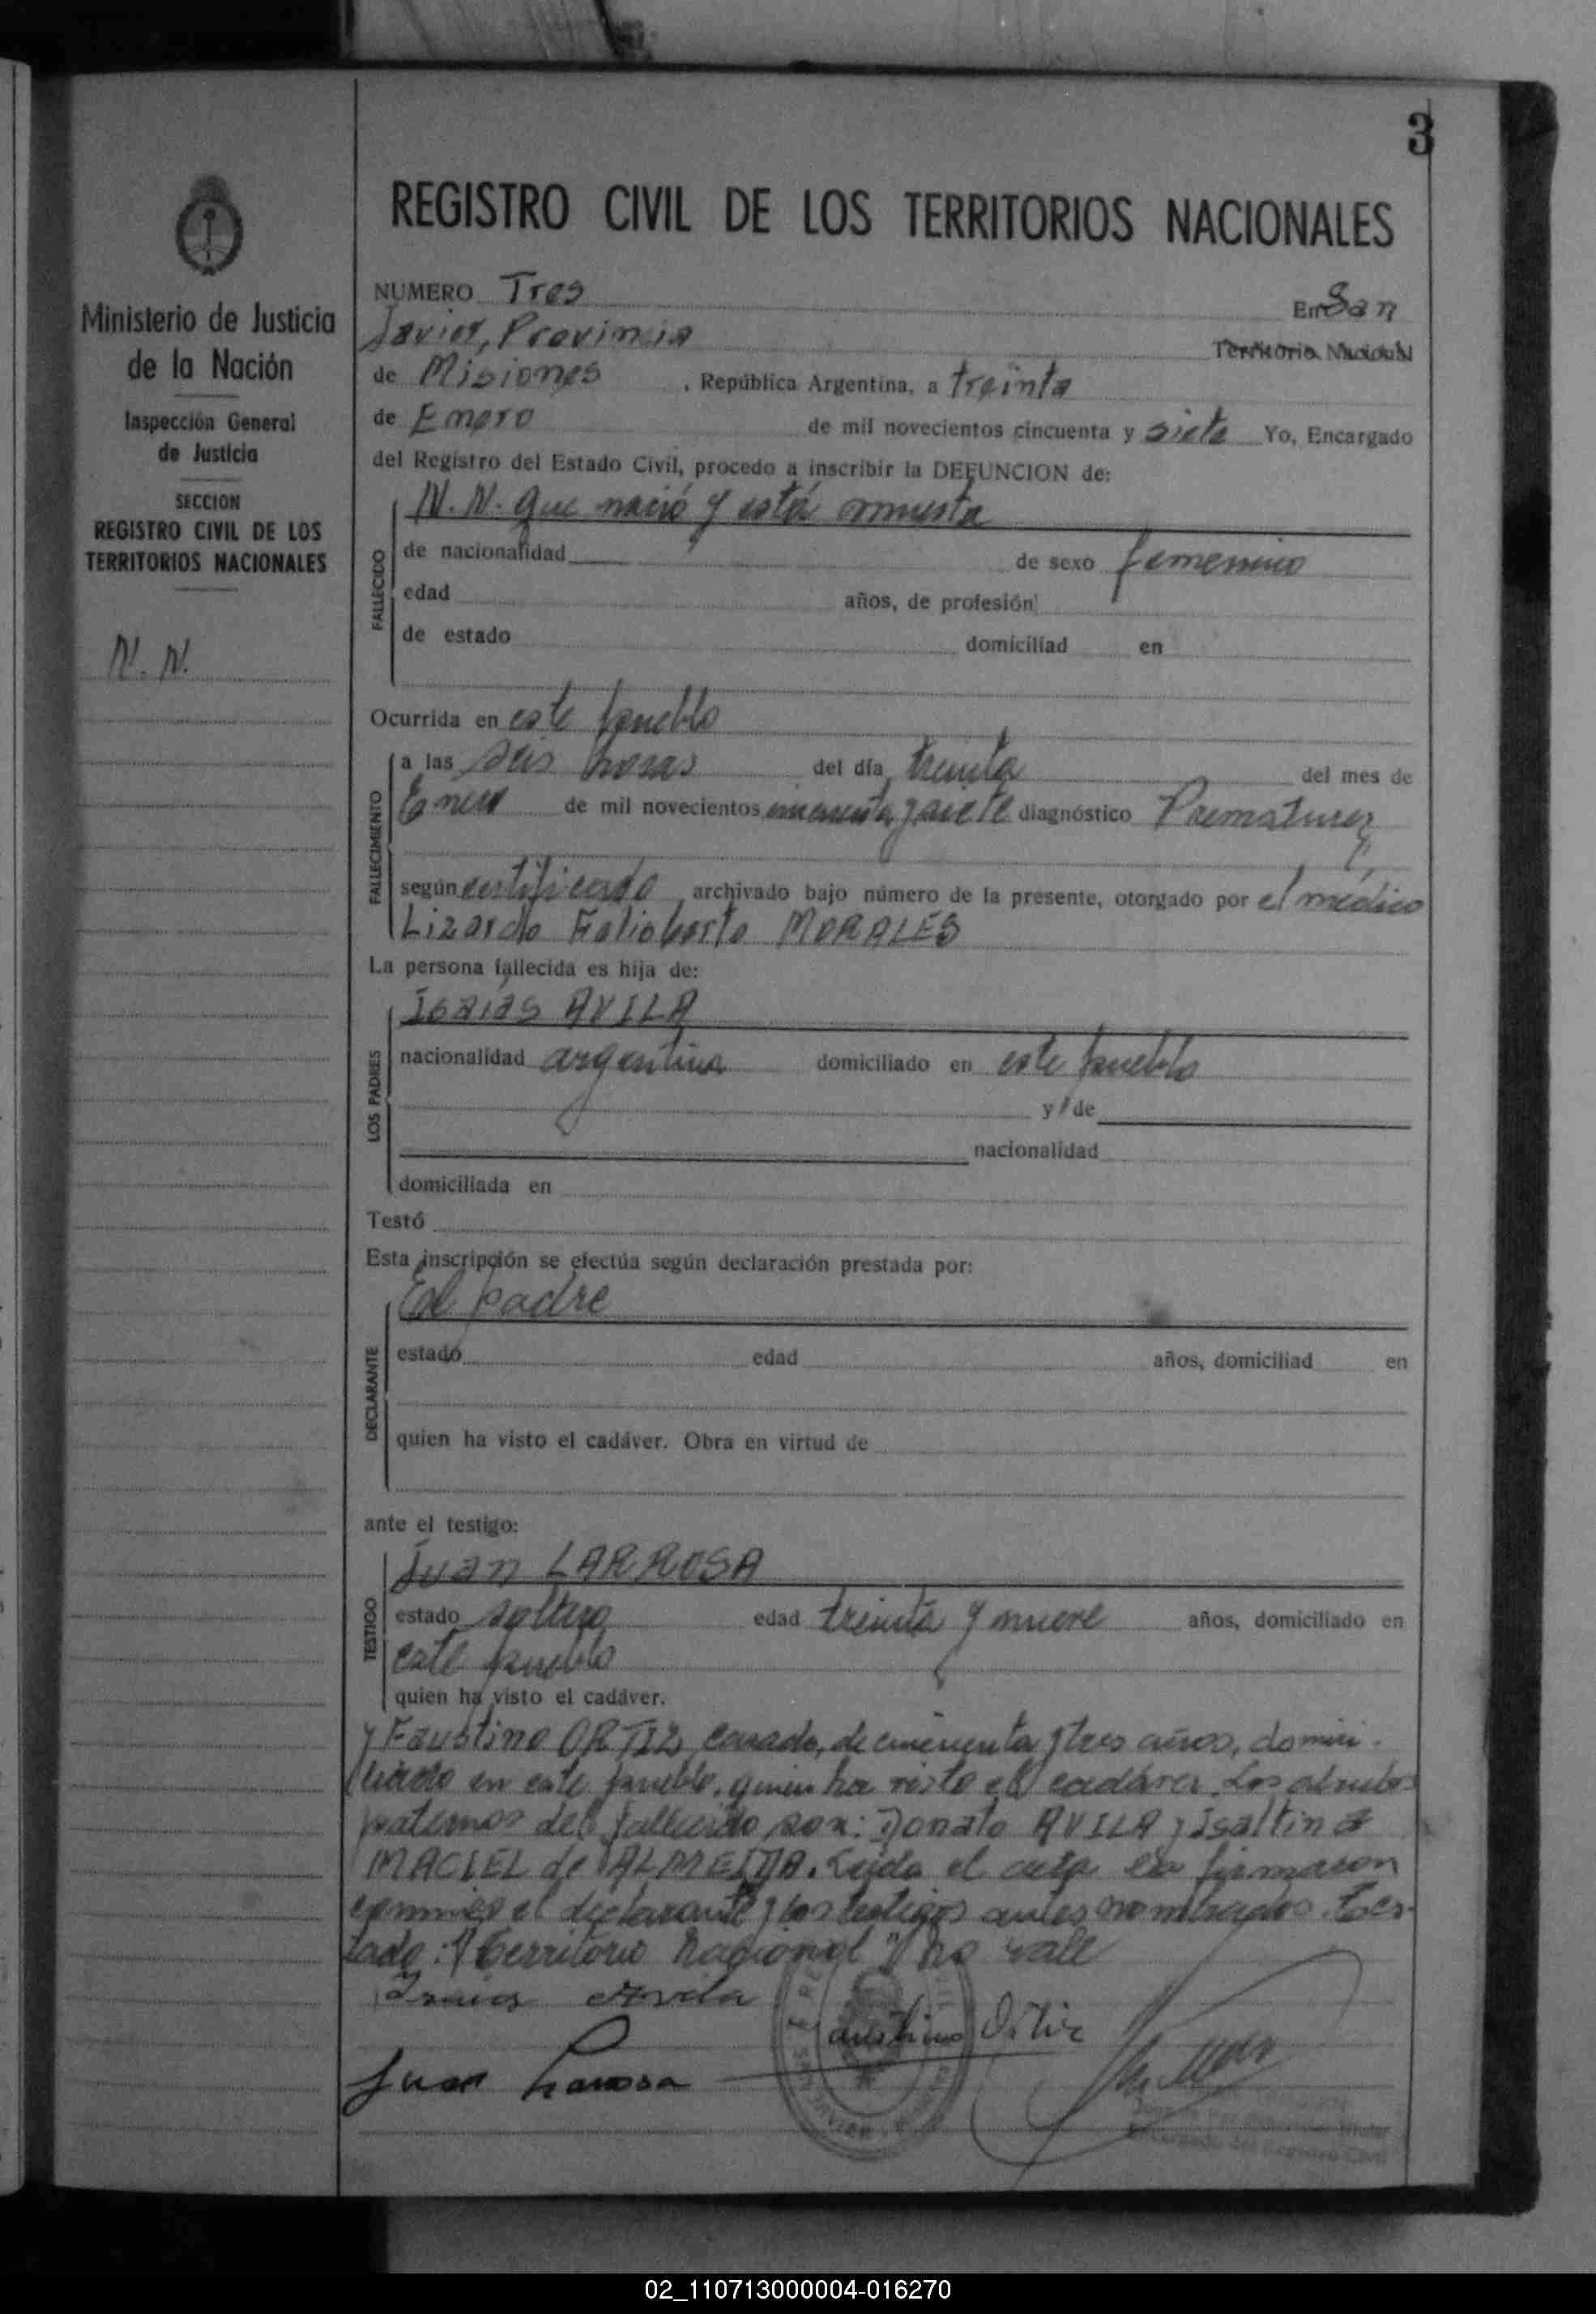 3
REGISTRO CIVIL DE LOS TERRITORIOS NACIONALES
Ministerio de Justicia
de la Nación
Inspección General
de Justicia
SECCION
REGISTRO CIVIL DE LOS
TERRITORIOS NACIONALES
N. N.
NUMERO Tres En San
Javier, Provincia Territorio Nacional
de Misiones , República Argentina, a treinta
de Enero de mil novecientos cincuenta y siete Yo, Encargado
del Registro del Estado Civil, procedo a inscribir la DEFUNCION de:
N. N. que nació y está muerta
FALLECIDO
de nacionalidad de sexo femenino
edad años, de profesión
de estado domiciliad en
Ocurrida en este pueblo
FALLECIMIENTO
a las seis horas del día treinta del mes de
Enero de mil novecientos cincuenta y siete diagnóstico Prematurez
según certificado archivado bajo número de la presente, otorgado por el médico
Lizardo MORALES
La persona fallecida es hija de:
LOS PADRES
Isaias AVILA
nacionalidad argentina domiciliado en este pueblo
y de
nacionalidad
domiciliada en
Testó
Esta inscripción se efectúa según declaración prestada por:
DECLARANTE
El padre
estado edad años, domiciliad en
quien ha visto el cadáver. Obra en virtud de
ante el testigo:
TESTIGO
Juan LARROSA
estado soltero edad treinta y nueve años, domiciliado en
este pueblo
quien ha visto el cadáver.
y Faustino ORTIZ, casado, de cincuenta y tres años, domici-
liado en este pueblo, quien ha visto el cadáver. Los abuelos
paternos del fallecido son: Donato AVILA y Isaltina
MACIEL de ALMEIDA. Leída el acta la firmaron
conmigo el declarante y los testigos antes nombrados. Tes-
tado: "Territorio Nacional" no vale
Isaias Avila
Faustino Ortiz
Juan Larrosa
Encargado del Registro Civil
02_110713000004-016270